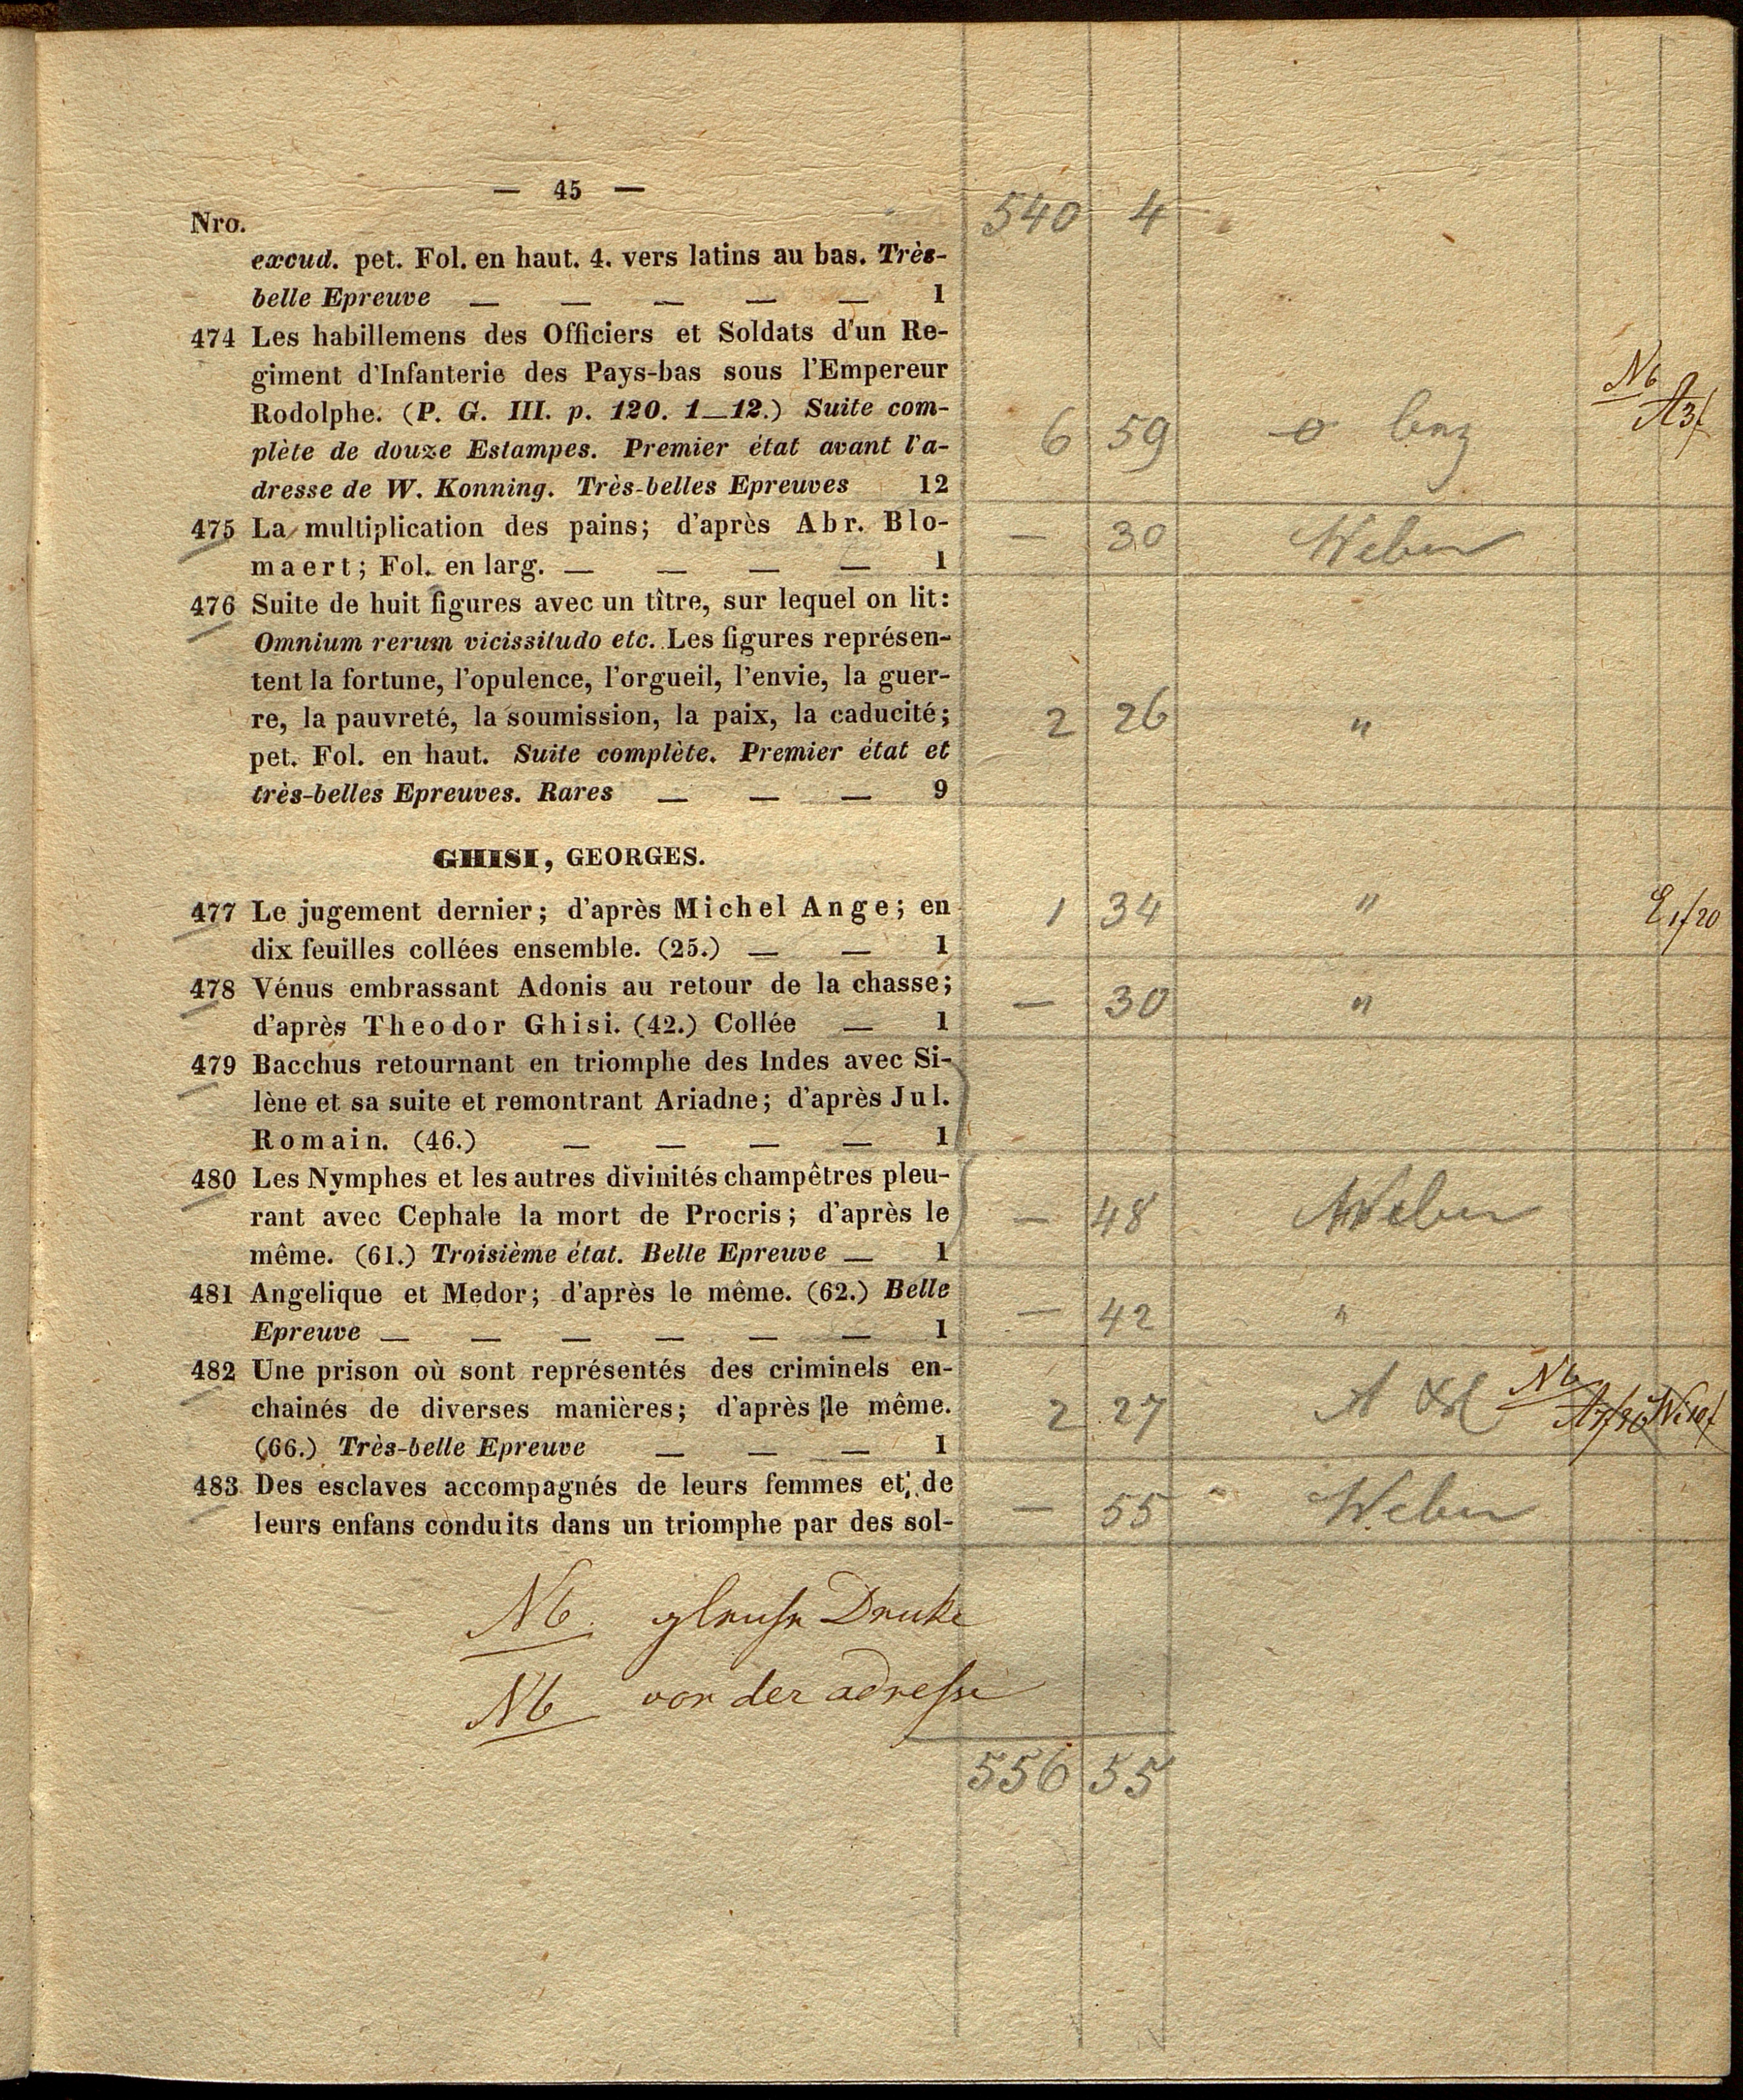 — 45 —
540 4
Nro.
excud. pet. Fol. en haut. 4. vers latins au bas. Très-
belle Epreuve — — — — — 1
474 Les habillemens des Officiers et Soldats d'un Re-
giment d'Infanterie des Pays-bas sous l'Empereur
Rodolphe. (P. G. III. p. 120. 1—12.) Suite com-
plète de douze Estampes. Premier état avant l'a-
dresse de W. Konning. Très-belles Epreuves 12
6 59
Nb
A3f
475 La multiplication des pains; d'après Abr. Blo-
maert; Fol. en larg. — — — — 1
— 30 Weber
476 Suite de huit figures avec un tître, sur lequel on lit:
Omnium rerum vicissitudo etc. Les figures représen-
tent la fortune, l'opulence, l'orgueil, l'envie, la guer-
re, la pauvreté, la soumission, la paix, la caducité;
pet. Fol. en haut. Suite complète. Premier état et
très-belles Epreuves. Rares — — — 9
2 26 "
GHISI, GEORGES.
477 Le jugement dernier; d'après Michel Ange; en
dix feuilles collées ensemble. (25.) — — 1
1 34 "
478 Vénus embrassant Adonis au retour de la chasse;
d'après Theodor Ghisi. (42.) Collée — 1
— 30 "
479 Bacchus retournant en triomphe des Indes avec Si-
lène et sa suite et remontrant Ariadne; d'après Jul.
Romain. (46.) — — — — 1
480 Les Nymphes et les autres divinités champêtres pleu-
rant avec Cephale la mort de Procris; d'après le
même. (61.) Troisième état. Belle Epreuve — 1
— 48 Weber
481 Angelique et Medor; d'après le même. (62.) Belle
Epreuve — — — — — — 1
— 42 "
482 Une prison où sont représentés des criminels en-
chainés de diverses manières; d'après le même.
(66.) Très-belle Epreuve — — — 1
2 27 Nb
483 Des esclaves accompagnés de leurs femmes et de
leurs enfans conduits dans un triomphe par des sol-
— 55 Weber
Nb. Druke
Nb vor der adresse
556 55